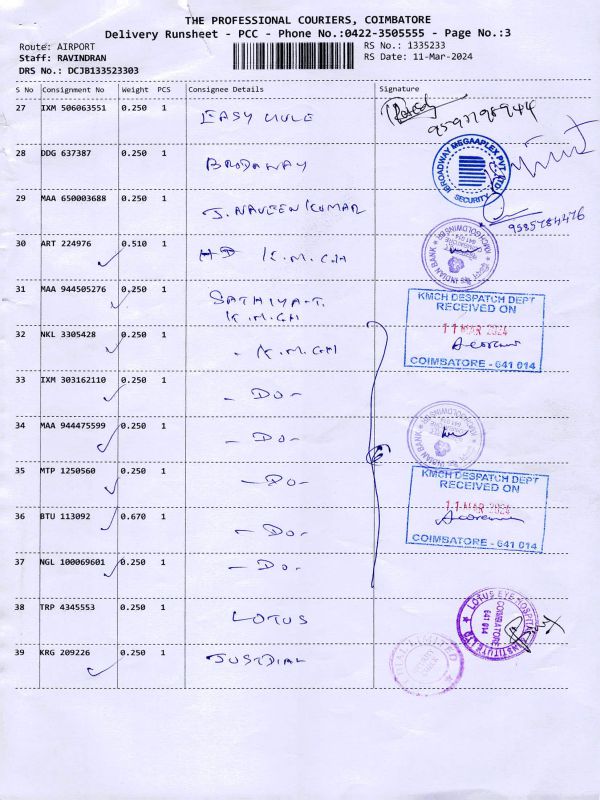 THE PROFESSIONAL COURIERS, COIMBATORE
Delivery Runsheet - PCC - Phone No.:0422-3505555 - Page No.:3
Route: AIRPORT
Staff: RAVINDRAN
DRS No.: DCJB133523303
RS No.: 1335233
RS Date: 11-Mar-2024
S No Consignment No Weight PCS Consignee Details Signature
27 IXM 506063551 0.250 1 EASY MULE
28 DDG 637387 0.250 1 BRODAWAY
BROADWAY MEGAAPLEX PVT LTD
SECURITY
29 MAA 650003688 0.250 1 J. NAVEEN KUMAR
9585784476
30 ART 224976 0.510 1 HD K.M.C.H
INDIAN BANK
31 MAA 944505276 0.250 1 SATHIYA-T.
K.M.CH
KMCH DESPATCH DEPT
RECEIVED ON
11 MAR 2024
COIMBATORE - 641 014
32 NKL 3305428 0.250 1 - K.M.CH
33 IXM 303162110 0.250 1 - DO -
34 MAA 944475599 0.250 1 - DO -
INDIAN BANK
35 MTP 1250560 0.250 1 - DO -
KMCH DESPATCH DEPT
RECEIVED ON
11 MAR 2024
COIMBATORE - 641 014
36 BTU 113092 0.670 1 - DO -
37 NGL 100069601 0.250 1 - DO -
38 TRP 4345553 0.250 1 LOTUS
LOTUS EYE HOSPITAL & INSTITUTE LTD
COIMBATORE
641 014
39 KRG 209226 0.250 1 JUSTDIAL